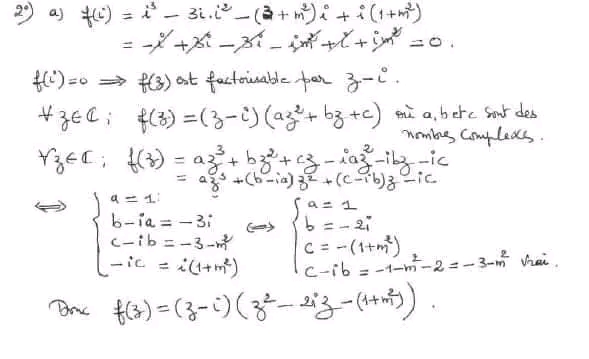 2°) a) f(i) = i³ − 3i.i² − (3+m²)i + i(1+m²)
= −i + 3i − 3i − im² + i + im² = 0.
f(i)=0 ⟹ f(z) est factorisable par z−i.
∀z∈ℂ; f(z) = (z−i)(az²+bz+c) où a, b et c sont des
nombres complexes.
∀z∈ℂ; f(z) = az³+bz²+cz−iaz²−ibz−ic
= az³+(b−ia)z²+(c−ib)z−ic
⟺ { a = 1 ; b−ia = −3i ; c−ib = −3−m² ; −ic = i(1+m²) ⟺ { a = 1 ; b = −2i ; c = −(1+m²) ; c−ib = −1−m²−2 = −3−m² vrai.
Donc f(z) = (z−i)(z²−2iz−(1+m²)).